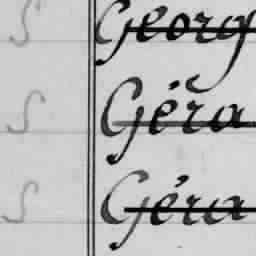 S Georg
S Géra
S Géra